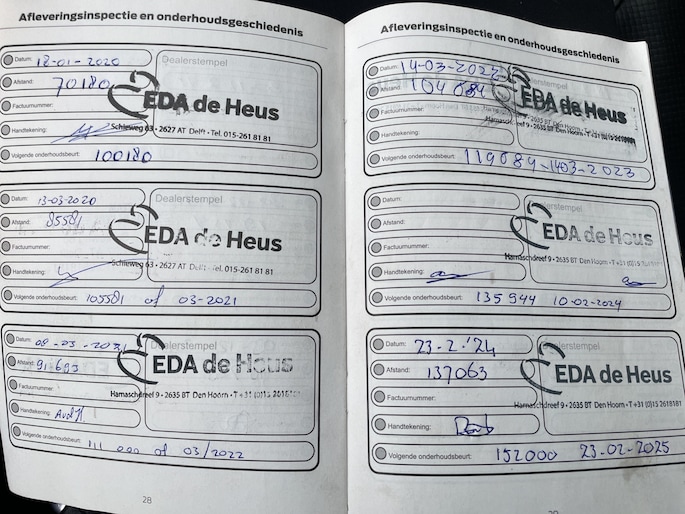 Afleveringsinspectie en onderhoudsgeschiedenis
Datum: 18-01-2020
Dealerstempel
Afstand: 70180
EDA de Heus
Factuurnummer:
Schieweg 63 • 2627 AT Delft • Tel. 015-261 81 81
Handtekening:
Volgende onderhoudsbeurt: 100180
Datum: 13-03-2020
Dealerstempel
Afstand: 85581
EDA de Heus
Factuurnummer:
Schieweg 63 • 2627 AT Delft • Tel. 015-261 81 81
Handtekening:
Volgende onderhoudsbeurt: 105581 of 03-2021
Datum: 08-03-2021
Dealerstempel
Afstand: 91693
EDA de Heus
Factuurnummer:
Harnaschdreef 9 • 2635 BT Den Hoorn • T +31 (0)15 2618181
Handtekening:
Volgende onderhoudsbeurt: 111 000 of 03/2022
28
Afleveringsinspectie en onderhoudsgeschiedenis
Datum: 14-03-2022
Dealerstempel
Afstand: 104084
EDA de Heus
Factuurnummer:
Harnaschdreef 9 • 2635 BT Den Hoorn • T +31 (0)15 2618181
Handtekening:
Volgende onderhoudsbeurt: 119089-1403-2023
Datum:
Dealerstempel
Afstand:
EDA de Heus
Factuurnummer:
Harnaschdreef 9 • 2635 BT Den Hoorn • T +31 (0)15 2618181
Handtekening:
Volgende onderhoudsbeurt: 135944 10-02-2024
Datum: 23-2-'24
Dealerstempel
Afstand: 137063
EDA de Heus
Factuurnummer:
Harnaschdreef 9 • 2635 BT Den Hoorn • T +31 (0)15 2618181
Handtekening:
Volgende onderhoudsbeurt: 152000 23-02-2025